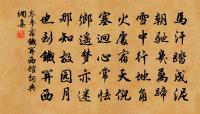 馬汗踏成泥
朝馳幾萬蹄
雪中行地角
火處宿天倪
塞迥心常怯
鄉遙夢亦迷
那知故園月
也到鐵關西
岑參宿鐵關西館詞典
網集